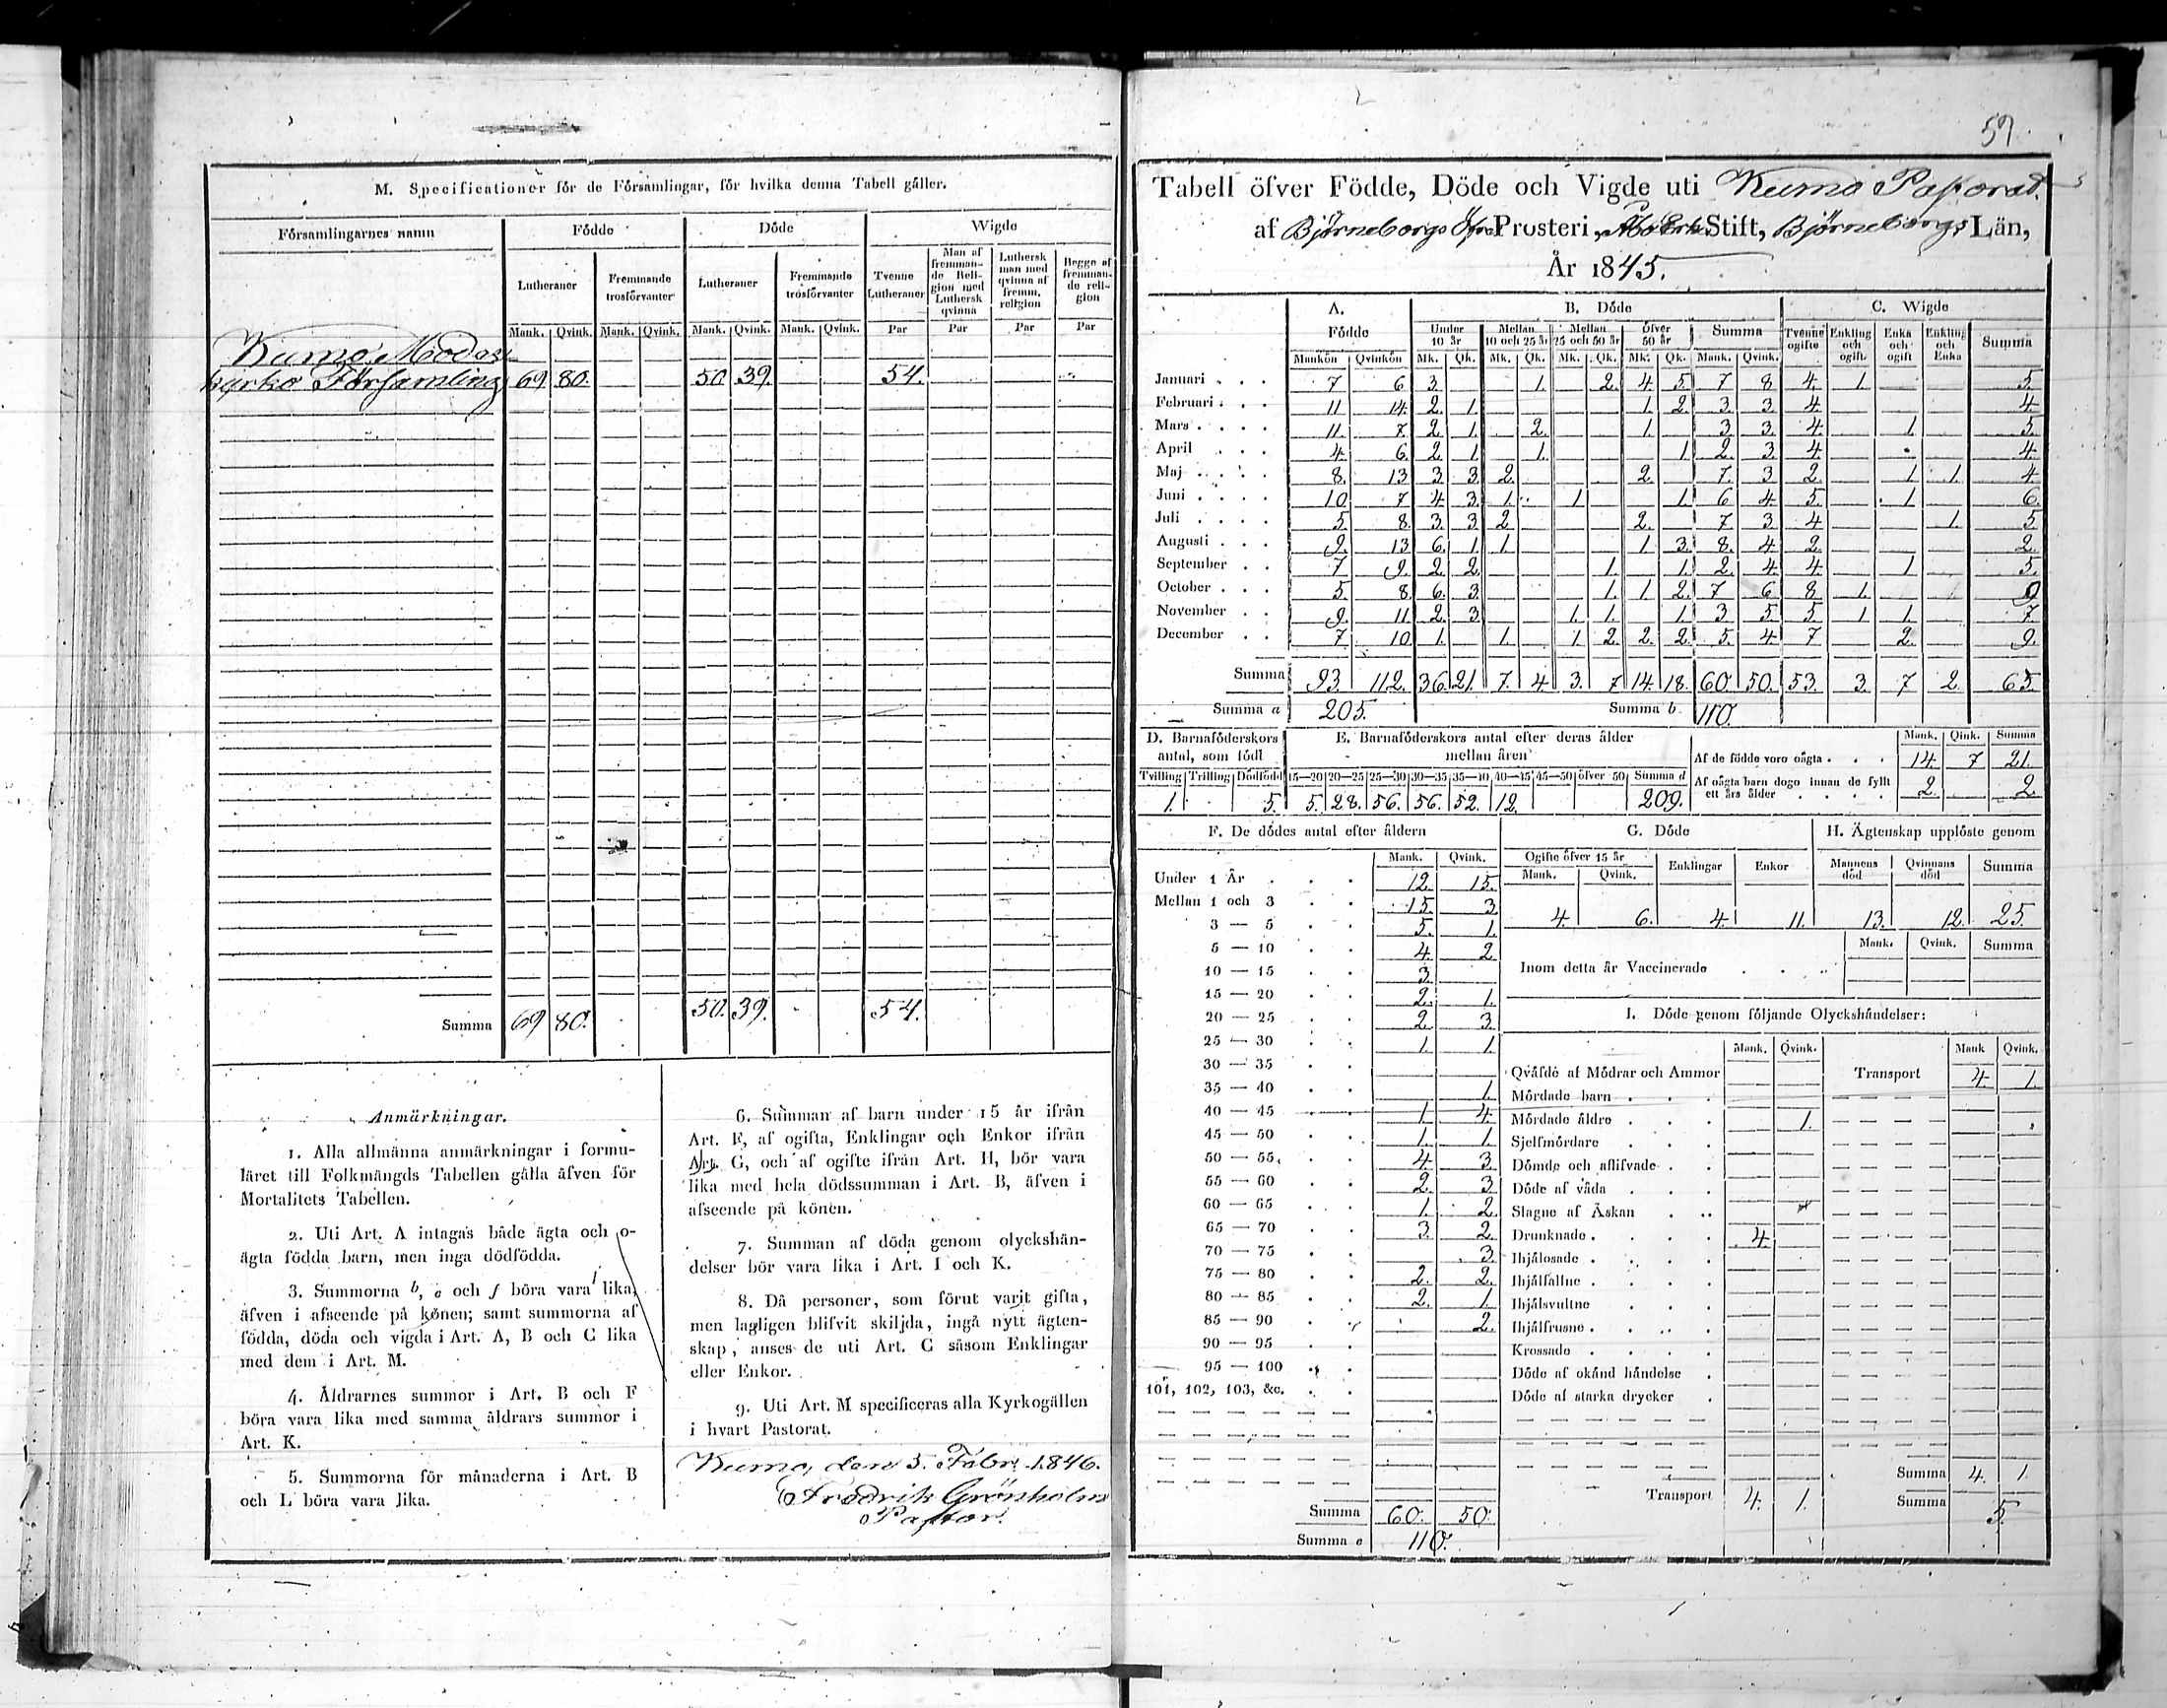 M. Specificationer för de Församlingar, för hvilka denna Tabell gäller.
Församlingarnes namn Födde Döde Wigde
Lutheraner Fremmande trosförvanter Lutheraner Fremmande trosförvanter Tvenne Lutheraner Man af fremmande Religion med Luthersk qvinna Luthersk man med qvinna af fremm. religion Begge af fremmande religion
Mank. Qvink. Mank. Qvink. Mank. Qvink. Mank. Qvink. Par Par Par Par
Kumo Moder
kyrko Församling 69 80. 50 39. 54.
Summa 69 80. 50. 39. 54.
Anmärkningar.
1. Alla allmänna anmärkningar i formu-
läret till Folkmängds Tabellen gälla äfven för
Mortalitets Tabellen.
2. Uti Art. A intagas både ägta och o-
ägta födda barn, men inga dödfödda.
3. Summorna b, c och f böra vara lika,
äfven i afseende på könen; samt summorna af
födda, döda och vigda i Art. A, B och C lika
med dem i Art. M.
4. Åldrarnes summor i Art. B och F
böra vara lika med samma åldrars summor i
Art. K.
5. Summorna för månaderna i Art. B
och L böra vara lika.
6. Summan af barn under 15 år ifrån
Art. F, af ogifta, Enklingar och Enkor ifrån
Art. G, och af ogifte ifrån Art. H, bör vara
lika med hela dödssumman i Art. B, äfven i
afseende på könen.
7. Summan af döda genom olyckshän-
delser bör vara lika i Art. I och K.
8. Då personer, som förut varit gifta,
men lagligen blifvit skiljda, ingå nytt ägten-
skap, anses de uti Art. C såsom Enklingar
eller Enkor.
9. Uti Art. M specificeras alla Kyrkogällen
i hvart Pastorat.
Kumo, den 5. Febr. 1846.
Fredrik Grönholm
Pastor.
57
Tabell öfver Födde, Döde och Vigde uti Kumo Pastorat
af Björneborgs Öfre Prosteri, Åbo Erke Stift, Björneborgs Län,
År 1845.
A. Födde B. Döde C. Wigde
Under 10 år Mellan 10 och 25 år Mellan 25 och 50 år öfver 50 år Summa Tvenne ogifte Enkling och ogift. Enka och ogift Enkling och Enka Summa
Mankön Qvinkön Mk. Qk. Mk. Qk. Mk. Qk. Mk. Qk. Mank. Qvink.
Januari 7 6 3. 1. 2. 4. 5. 7 8 4. 1. 5.
Februari 11 14. 2. 1. 1. 2. 3. 3. 4. 4.
Mars 11. 7. 2. 1. 2. 1. 3 3. 4. 1. 5.
April 4. 6. 2. 1. 1. 1. 2. 3. 4. 4.
Maj 8. 13 3 3. 2. 2. 7. 3. 2. 1. 1. 4.
Juni 10 7 4. 3. 1. 1. 1. 6 4. 5. 1. 6.
Juli 5. 8. 3. 3. 2. 2. 7 3. 4. 1. 5.
Augusti 9. 13 6. 1. 1. 1. 3. 8. 4. 2. 2.
September 7. 9. 2. 2. 1. 1. 2. 4. 4. 1. 5.
October 5. 8. 6. 3. 1. 1. 2. 7 6. 8. 1. 9.
November 9. 11. 2. 3. 1. 1. 1. 3. 5. 5. 1 1. 7.
December 7. 10. 1. 1. 1. 2. 2. 2. 5. 4. 7 2. 9.
Summa 93. 112. 36. 21. 7. 4. 3. 7 14. 18. 60. 50. 53. 3. 7 2. 65.
Summa a 205. Summa b 110.
D. Barnaföderskors antal, som födt
Tvilling Trilling Dödfödd
1. 5.
E. Barnaföderskors antal efter deras ålder mellan åren
15—20 20—25 25—30 30—35 35—40 40—45 45—50 öfver 50 Summa d
5. 28. 56. 56. 52. 12. 209.
Mank. Qink. Summa
Af de födde voro oägta 14. 7 21.
Af oägta barn dogo innan de fyllt ett års ålder 2. 2.
F. De dödes antal efter åldern
Mank. Qvink.
Under 1 År 12. 15.
Mellan 1 och 3 15. 3
3 — 5 5. 1.
5 — 10 4. 2
10 — 15 3.
15 — 20 2. 1.
20 — 25 2. 3.
25 — 30 1. 1.
30 — 35
35 — 40 1.
40 — 45 1. 4.
45 — 50 1. 1.
50 — 55 4. 3.
55 — 60 2. 3.
60 — 65 1. 2.
65 — 70 3. 2.
70 — 75 3.
75 — 80 2. 2.
80 — 85 2. 1.
85 — 90 2.
90 — 95
95 — 100
101, 102, 103, &c.
Summa 60. 50.
Summa c 110.
G. Döde
Ogifte öfver 15 år Enklingar Enkor
Mank. Qvink.
4. 6. 4. 11.
H. Ägtenskap upplöste genom
Mannens död Qvinnans död Summa
13. 12. 25.
Mank. Qvink. Summa
Inom detta år Vaccinerade
I. Döde genom följande Olyckshändelser:
Mank. Qvink. Mank Qvink.
Qväfde af Mödrar och Ammor Transport 4. 1.
Mördade barn
Mördade äldre 1.
Sjelfmördare
Dömde och aflifvade
Döde af våda
Slagne af Åskan
Drunknade 4.
Ihjälosade
Ihjälfallne
Ihjälsvultne
Ihjälfrusne
Krossade
Döde af okänd händelse
Döde af starka drycker
Summa 4. 1.
Transport 4. 1. Summa 5.